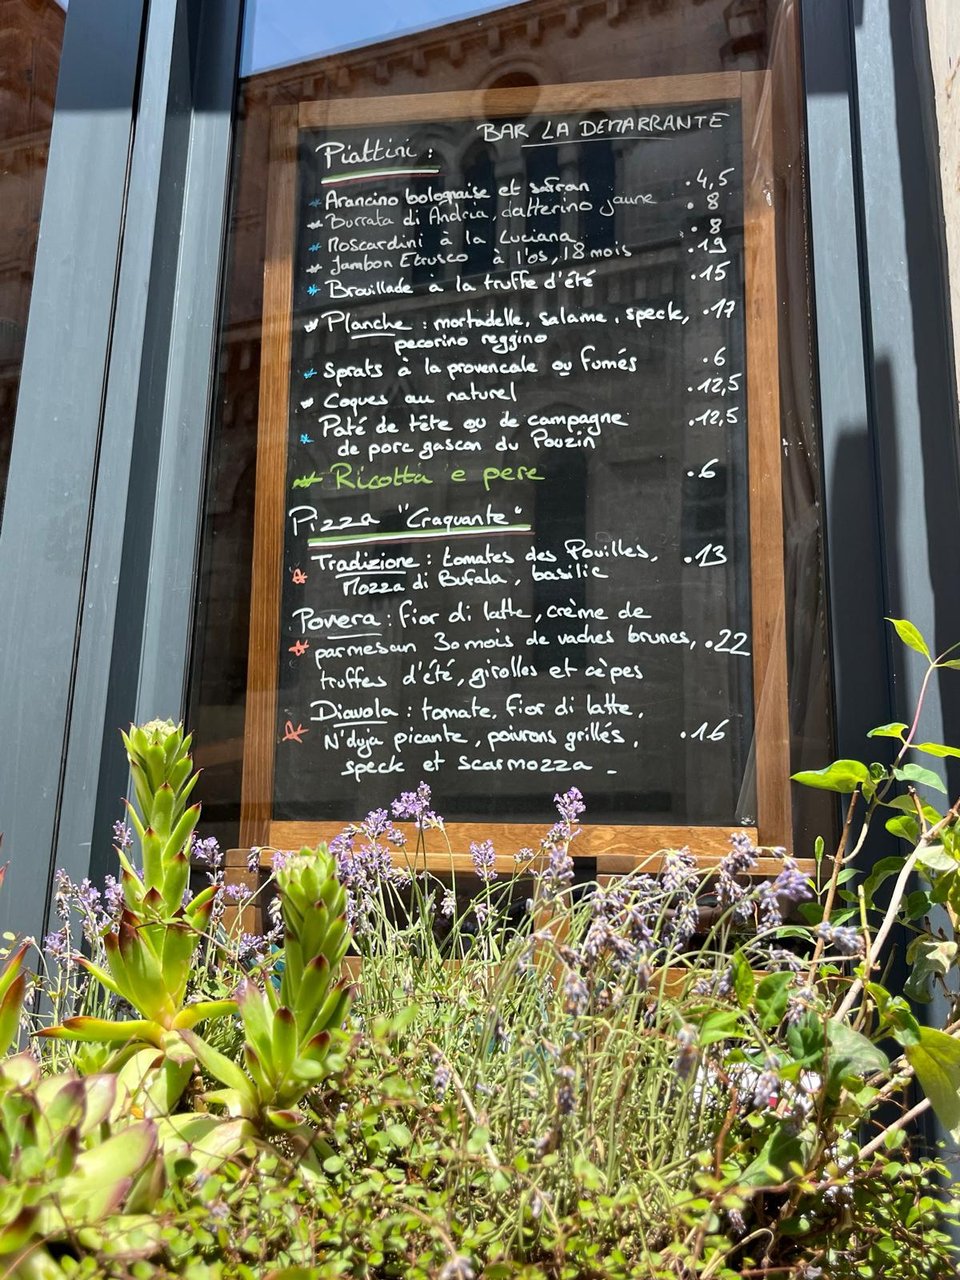 BAR LA DEMARRANTE
Piattini :
* Arancino bolognaise et safran . 4,5
* Burrata di Andria, datterino jaune . 8
* Moscardini à la Luciana . 8
* Jambon Etrusco à l'os, 18 mois . 19
* Brouillade à la truffe d'été . 15
* Planche : mortadelle, salame, speck, . 17
pecorino reggino
* Sprats à la provencale ou fumés . 6
* Coques au naturel . 12,5
* Paté de tête ou de campagne . 12,5
de porc gascon du Pouzin
* Ricotta e pere . 6
Pizza "Craquante"
* Tradizione : tomates des Pouilles, . 13
Mozza di Bufala, basilic
Povera : fior di latte, crème de
* parmesan 30 mois de vaches brunes, . 22
truffes d'été, girolles et cèpes
Diavola : tomate, fior di latte,
* N'duja picante, poivrons grillés, . 16
speck et scarmozza .